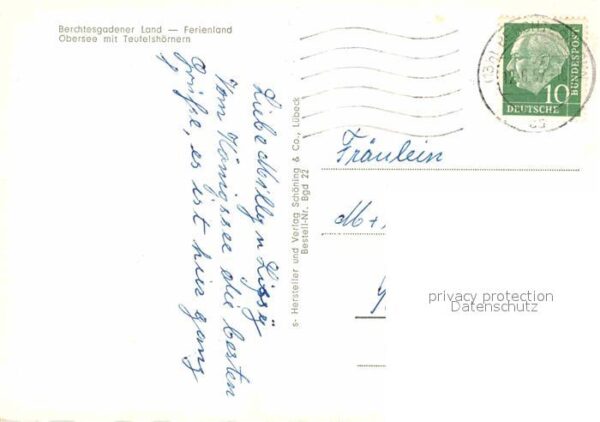 Berchtesgadener Land — Ferienland
Obersee mit Teufelshörnern
Liebe Milly u Lissy
Vom Königssee die besten
Grüße, es ist hier ganz
s- Hersteller und Verlag Schöning & Co., Lübeck
Bestell-Nr. Bgd 22
10
DEUTSCHE
BUNDESPOST
Fräulein
M+.
privacy protection
Datenschutz